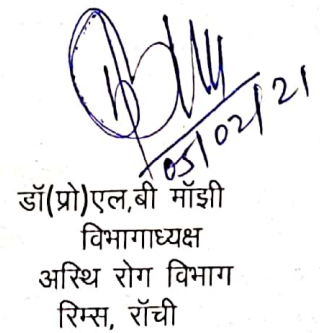 05/02/21
डॉ(प्रो)एल,बी मॉझी
विभागाध्यक्ष
अस्थि रोग विभाग
रिम्स, रॉची